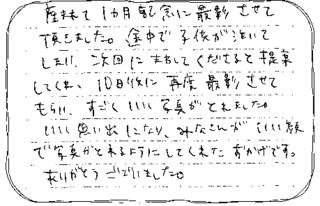 産まれて1ヵ月記念に最影させて
頂きました。途中で子供が泣いて
しまい、次回にまたしてくださると提案
してくれ、10日後に再度最影させて
もらい、すごくいい写真がとれました。
いい思い出になり、みなさんが いい顔
で写真がとれるようにしてくれた おかげです。
ありがとうございました。